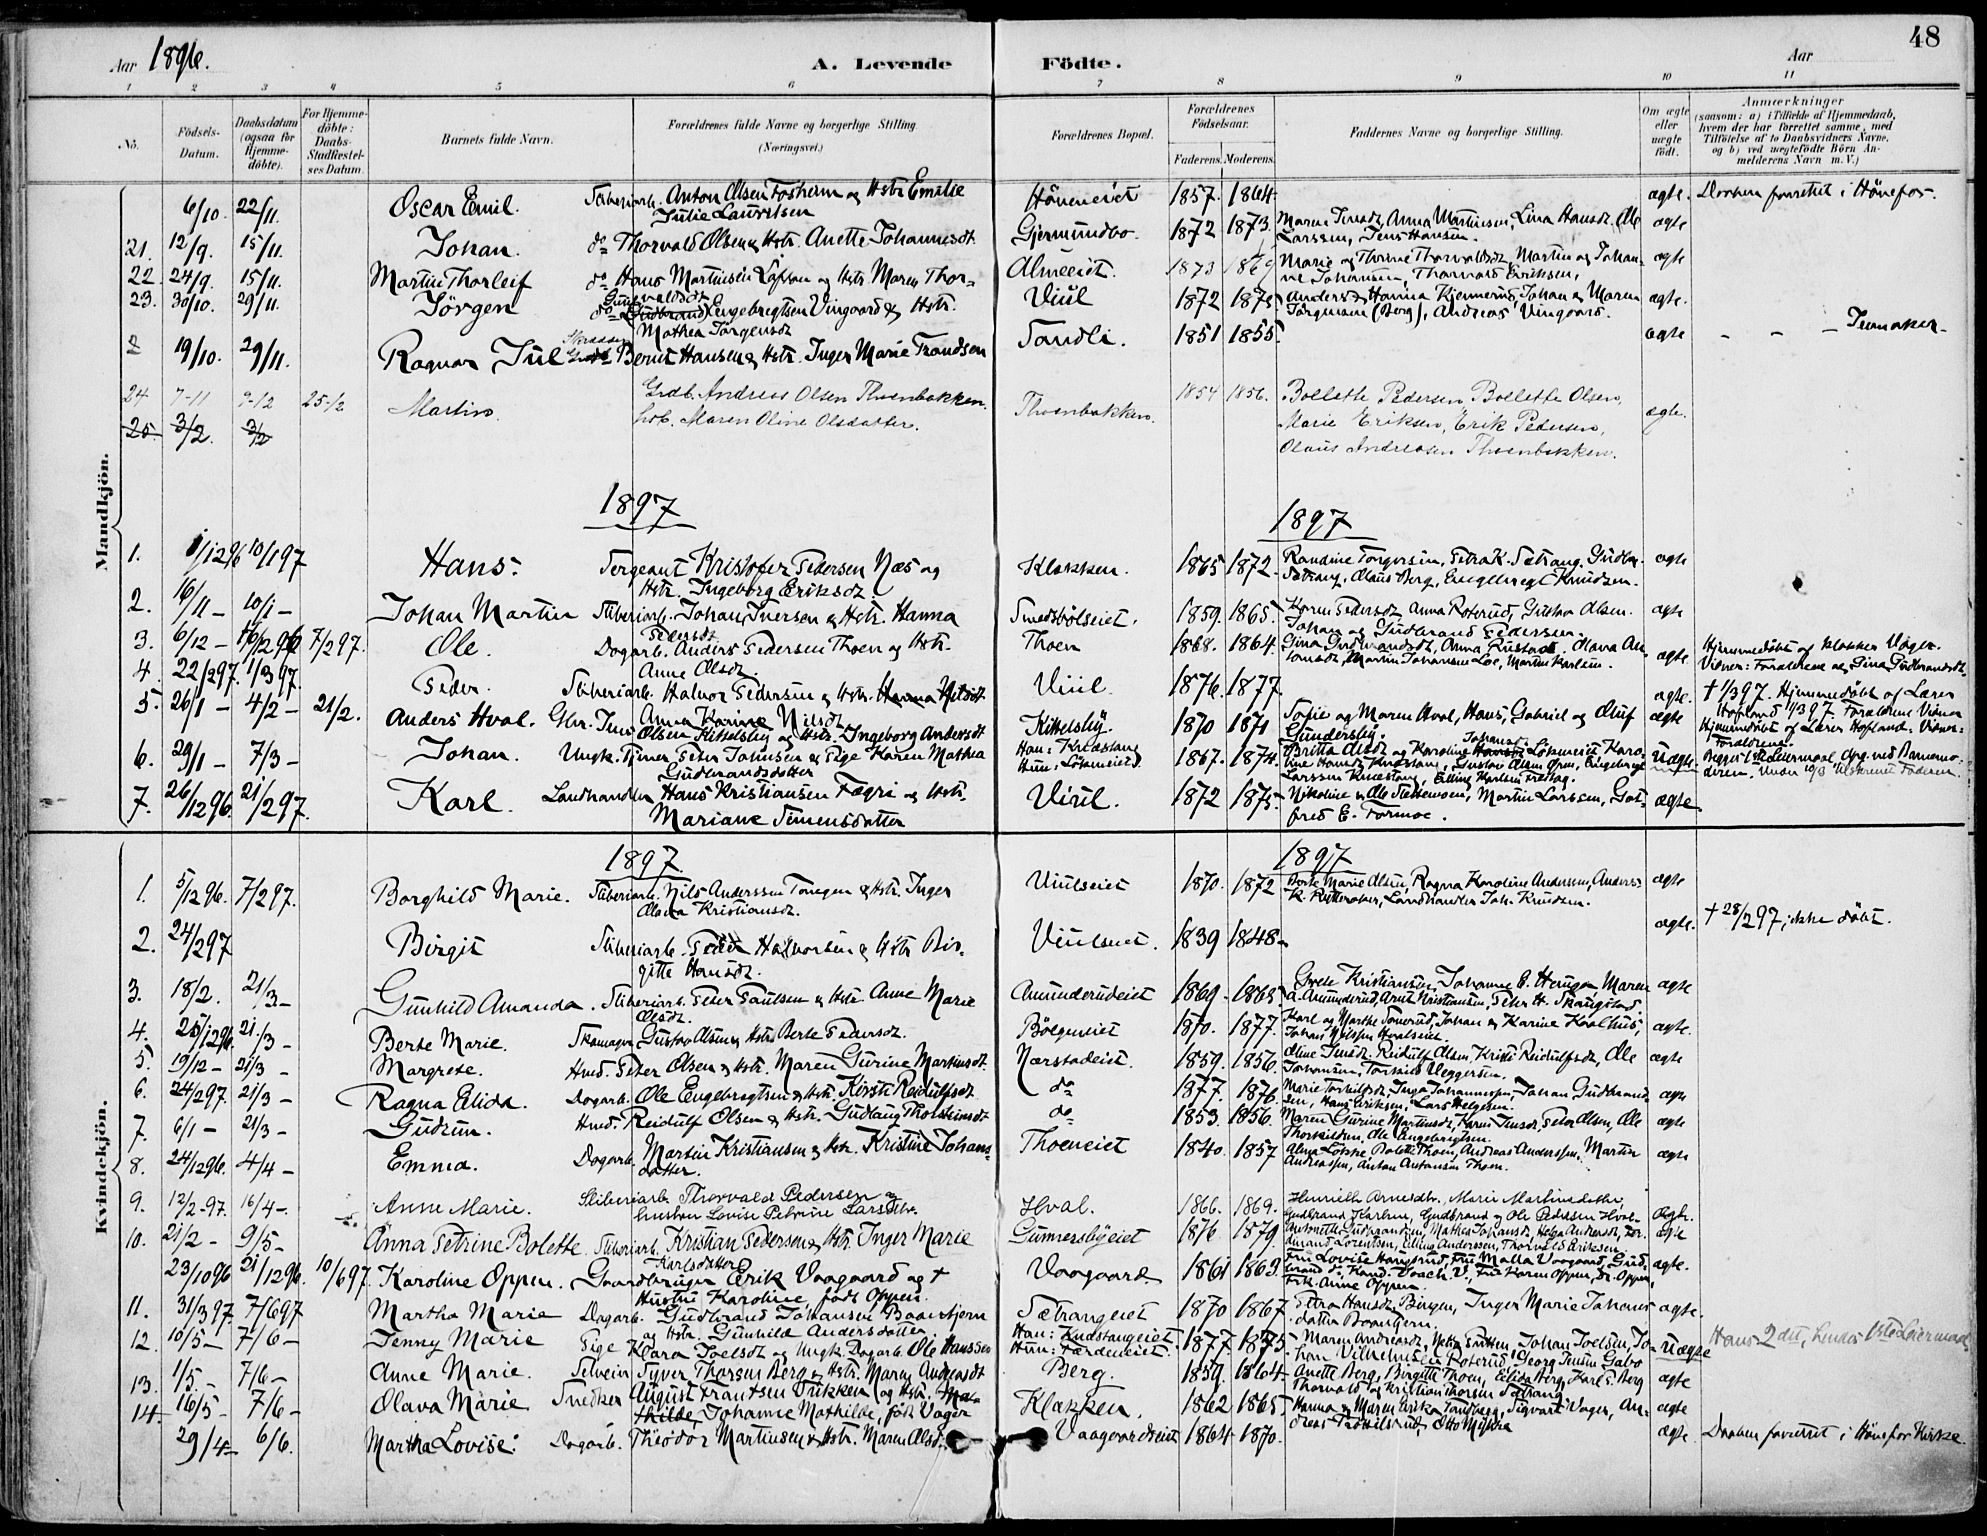 48
Aar 1896. A. Levende Födte. Aar
1 2 3 4 5 6 7 8 9 10 11
No. Födsels-Datum. Daabsdatum (ogsaa for Hjemme-döbte). For Hjemme-döbte: Daabs-Stadfæstel-ses Datum. Barnets fulde Navn. Forældrenes fulde Navne og borgerlige Stilling. (Næringsvei.) Forældrenes Bopæl. Forældrenes Födselsaar. Faderens. Moderens. Faddernes Navne og borgerlige Stilling. Om ægte eller uægte födt. Anmærkninger (saasom: a) i Tilfælde af Hjemmedaab, hvem der har forrettet samme, med Tilföielse af to Daabsvidners Navne, og b) ved uægtefödte Börn An-melderens Navn m. V.)
Mandkjön.
6/10. 22/11. Oscar Emil. Sliberiarb. Anton Olsen Fosheim og Hstr. Emilie Julie Lauritsen Höneneiet 1857. 1864. ægte. Daaben forrettet i Hönefos.
21. 12/9. 15/11. Johan. do Thorvald Olsen & Hstr. Anette Johannesdt. Gjermundbo. 1872 1873. Maren Anna Martinsen, Lina Hansdt. Ole Larssen, Jens Hansen. ægte
22. 24/9. 15/11. Martin Thorleif do Hans Martinsen og Hstr. Maren Thor- Almeeiet. 1873 1869 Marie og Thorine Thorvaldsdt, Martin og Johan-ne Johansen, Thorvald Eriksen, ægte
23. 30/10. 29/11. Jörgen do Engebregtsen Viugaard & Hstr. Mathea Jörgensdt Viul 1872 1875. Anders & Hanna Kjennerud, Johan & Maren Jörgensen (Berg), Andreas Viugaard. ægte.
2 19/10. 29/11. Ragnar Jul Bernt Hansen & Hstr. Inger Marie Trondsen Sandli. 1851 1855. ægte - - - Jevnaker.
24 7-11 9-12 25-12 Martin. Grdb. Andreas Olsen Thoenbakken. Hst. Maren Oline Olsdatter. Thoenbakken. 1854 1856. Bollette Pedersen Bollette Olsen, Marie Eriksen, Erik Pedersen, Olaus Andreasen Thoenbakken. ægte.
25 3/2. 3/2
1897 1897
1. 1/12 96 10/1 97 Hans. Sergeant Kristofer Pedersen Næs og Hstr. Ingeborg Eriksdt. Klækken. 1865 1872. Randine Torgersen, Petra K. Sætrang, Gudbr. Sætrang, Olaus Berg, Engebregt Knudsen. ægte
2. 16/11 - 10/1 - Johan Martin Sliberiarb. Johan Iversen & Hstr. Hanna Pedersdt. Smedsbölseiet. 1859. 1865. Karen Pedersdt, Anna Roterud, Gustav Olsen. Johan og Gudbrand Pedersen. ægte
3. 6/12 - 7/2 97. Ole. Dagarb. Anders Pedersen Thoen og Hstr. Anne Olsdt. Thoen 1868. 1864. Gina Gudbrandsdt, Anna Rustad. Olava An-tonsdt, Martin Johansen Loe, Martin Karlsen. ægte Hjemmedöbt af Klokker Vager. Vidner: Forældrene og Gina Gudbrandsdt.
4. 22/2 97. 1/3 97. Peder. Sliberiarb. Halvor Pedersen & Hstr. Hanna Nilsdt Viul. 1876. 1877. ægte. † 1/3 97. Hjemmedöbt af Lærer Hofland 1/3 97. Forældrene Vidner
5. 26/1 - 4/2 - 21/2. Anders Hval. Gbr. Jens Olsen Kittelsby og Hstr. Ingeborg Andersdt Kittelsby. 1870 1871 Sofie og Maren Hval, Hans, Gabriel og Oluf Gundersby. ægte Hjemmedöbt af Lærer Hofland. Vidner: Forældrene.
6. 29/1 - 7/3 - Johan. Ungk. Tjener Peter Johnsen & Pige Karen Mathea Gudbrandsdatter Han: Knestang Hun: Lökeneiet. 1867. 1874. Britta Olsdt og Karoline Lökeneiet, Karo-line Hansdt Knestang, Gustav Olsen Opn, Engebregt Larssen Knestang, Elling Karlsen Fretlag. Uægte. Begges 1ste Leiermaal. Opg. ved Barnemo-deren.
7. 26/12 96. 21/2 97. Karl. Landhandler Hans Kristiansen Fægri og Hstr. Mariane Simensdatter Viul. 1872 1875. Nikoline & Ole Slettemoen, Martin Larssen, Got-fred E. Formoe. ægte
Kvindekjön.
1897 1897
1. 5/12 96. 7/2 97. Borghild Marie. Sliberiarb. Nils Anderssen Tangen & Hstr. Inger Olava Kristiansdt. Viulseiet 1870. 1872 Berte Marie Olsen, Ragna Karoline Andersen, Anders K. Rytteraker, Landhandler Joh. Knudsen. ægte
2. 24/2 97 Birgit Sliberiarb. Peder Halvorsen & Hstr. Bir-gitte Hansdt. Viulseiet. 1839 1848. ægte. † 28/2 97, ikke döbt.
3. 18/2. 21/3 - Gunhild Amanda. Sliberiarb. Peter Paulsen & Hstr. Anne Marie Olsdt. Amunderudeiet 1869. 1865. Grete Kristiansen, Johanne E. Haugen, Maren A. Amunderud, Arnt Kristiansen, Peter H. Skaugstad. ægte
4. 25/12 96. 21/3 - Berte Marie. Skomager Gustav Olsen & Hstr. Berte Pedersdt. Bölgeneiet 1870. 1877. Karl og Marthe Tomerud, Johan & Karine Kaalhus, Johan Nilssen Hvalseiet. ægte.
5. 19/12 - 21/3 - Margrete. Hmd. Peter Olsen & Hstr. Maren Gurine Martinsdt. Narstadeiet. 1859. 1856. Oline Jensdt. Reidulf Olsen, Kristi Reidulfsdt, Ole Johansen, Torkild Veggersen. ægte
6. 24/2 97. 21/3 - Ragna Elida. Dagarb. Ole Engebregtsen & Hstr. Kirsti Reidulfsdt do 1877. 1876. Marie Torkildsdt, Inga Johannessen, Johan Gudbrand-sen, Hans Eriksen, Lars Helgesen. ægte
7. 6/1 - 21/3 - Gudrun. Hmd. Reidulf Olsen & Hstr. Gudlaug Tholsteinsdt do. 1853. 1856. Maren Gurine Martinsdt, Karen Jensdt, Peter Olsen, Ole Thorkildsen, Ole Engebregtsen. ægte
8. 24/12 96. 4/4 - Emma. Dagarb. Martin Kristiansen & Hstr. Kristine Johans-datter. Thoeneiet 1840. 1857 Alma Lökke, Bolette Thoen, Andreas Anderssen, Martin Andreassen, Anton Antonsen Thoen. ægte
9. 12/2-97. 16/4 - Anne Marie. Sliberiarb. Thorvald Pedersen og hustru Lovise Petrine Larsdtr. Hval. 1866. 1869. Henriette Arnesdtr. Marie Martinsdatter Gudbrand Karlsen, Gudbrand og Ole Pedersen Hval. Ægte.
10. 21/2 - 9/5 - Anna Petrine Bolette. Sliberiarb. Kristian Pedersen & Hstr. Inger Marie Karlsdatter Gunnersbyeiet 1876. 1879. Antonette Gudbrandsen, Mathea Johansdt, Helga Andersdt, Fer-dinand Lorentsen, Elling Anderssen, Thorvald Eriksen. ægte
23/10 96 21/12 96. 10/6 97 Karoline Oppen. Gaardbruger Erik Vaagaard og † Hustru Karoline, född Oppen. Vaagaard 1861 1863. Fru Lovise Haugsrud, Fru Malla Vaagaard, Gud-brand do, Kand. Joach. V., Fru Karen Oppen, Dr. Oppen, Frk. Anne Oppen. ægte.
11. 31/3 97. 7/6 97 Martha Marie Dagarb. Gudbrand Johansen Baarstjern og Hstr. Gunhild Andersdatter Sætrangeiet 1870 1867. Petra Hansdt. Börgen, Inger Marie Johans-datter Borangern. ægte.
12. 10/5 - 7/6 - Jenny Marie Pige Klara Joelsdt og Ungk. Dagarb. Ole Hanssen Han: Kndstangeiet Hun: Færdeneiet. 1877. 1875. Maren Andreasdt, Netty Putten, Johan Joelsen, Jo-han Vilhelmsen Roterud, Georg Jensen Gabo Uægte Hans 2det, hendes 1ste Leiermaal
13. 1/5 - 7/6 - Anne Marie. Selveier Syver Thorsen Berg & Hstr. Maren Andreasdt Berg. 1859. 1864. Anette Berg, Birgitte Thoen, Elida Berg, Karl S. Berg Thorvald og Kristian Thorsen Sætrang. ægte
14 16/5 - 7/6 - Olava Marie Snedker August Frantsen Trikken og Hstr. Ma-thilde, Johanne Mathilde, född Vager Klækken. 1862 1865. Hanna & Maren Erika Tandberg, Sigvart Vager, An-dreas Tandbergrud, Otto Myhre ægte
29/4 - 6/6. Martha Lovise. Dagarb. Theodor Martinsen & Hstr. Maren Olsd. Vaagaardseiet 1864 1870. ægte. Daaben forrettet i Hönefos Kirke.